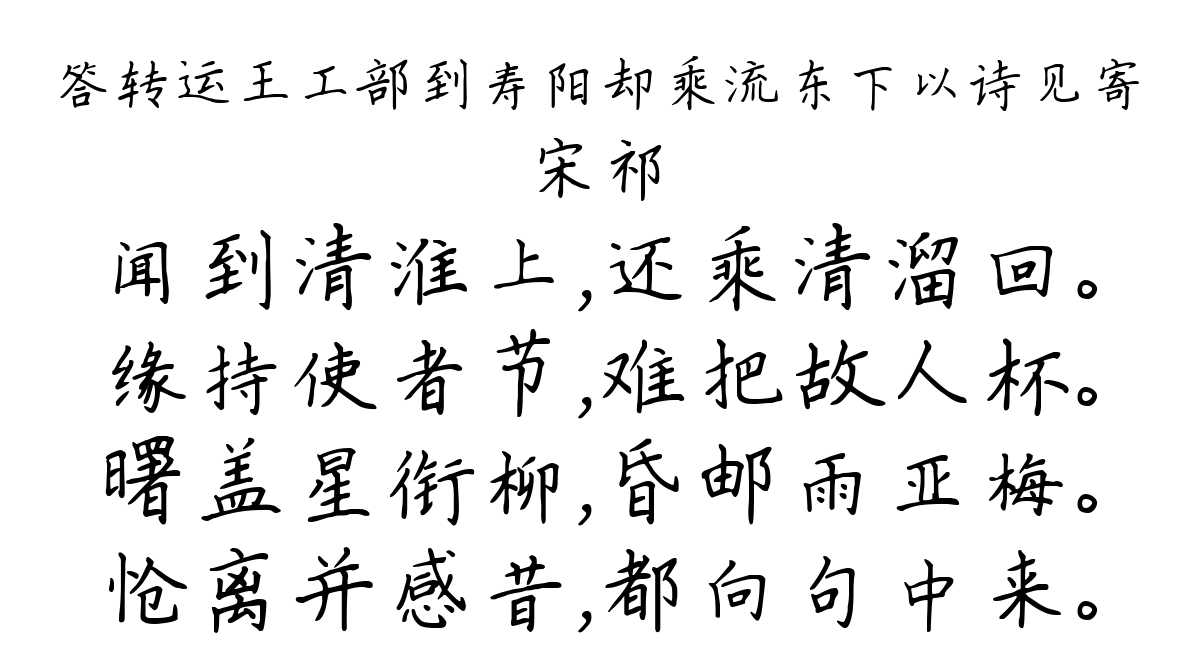 答转运王工部到寿阳却乘流东下以诗见寄
宋祁
闻到清淮上,还乘清溜回。
缘持使者节,难把故人杯。
曙盖星衔柳,昏邮雨亚梅。
怆离并感昔,都向句中来。